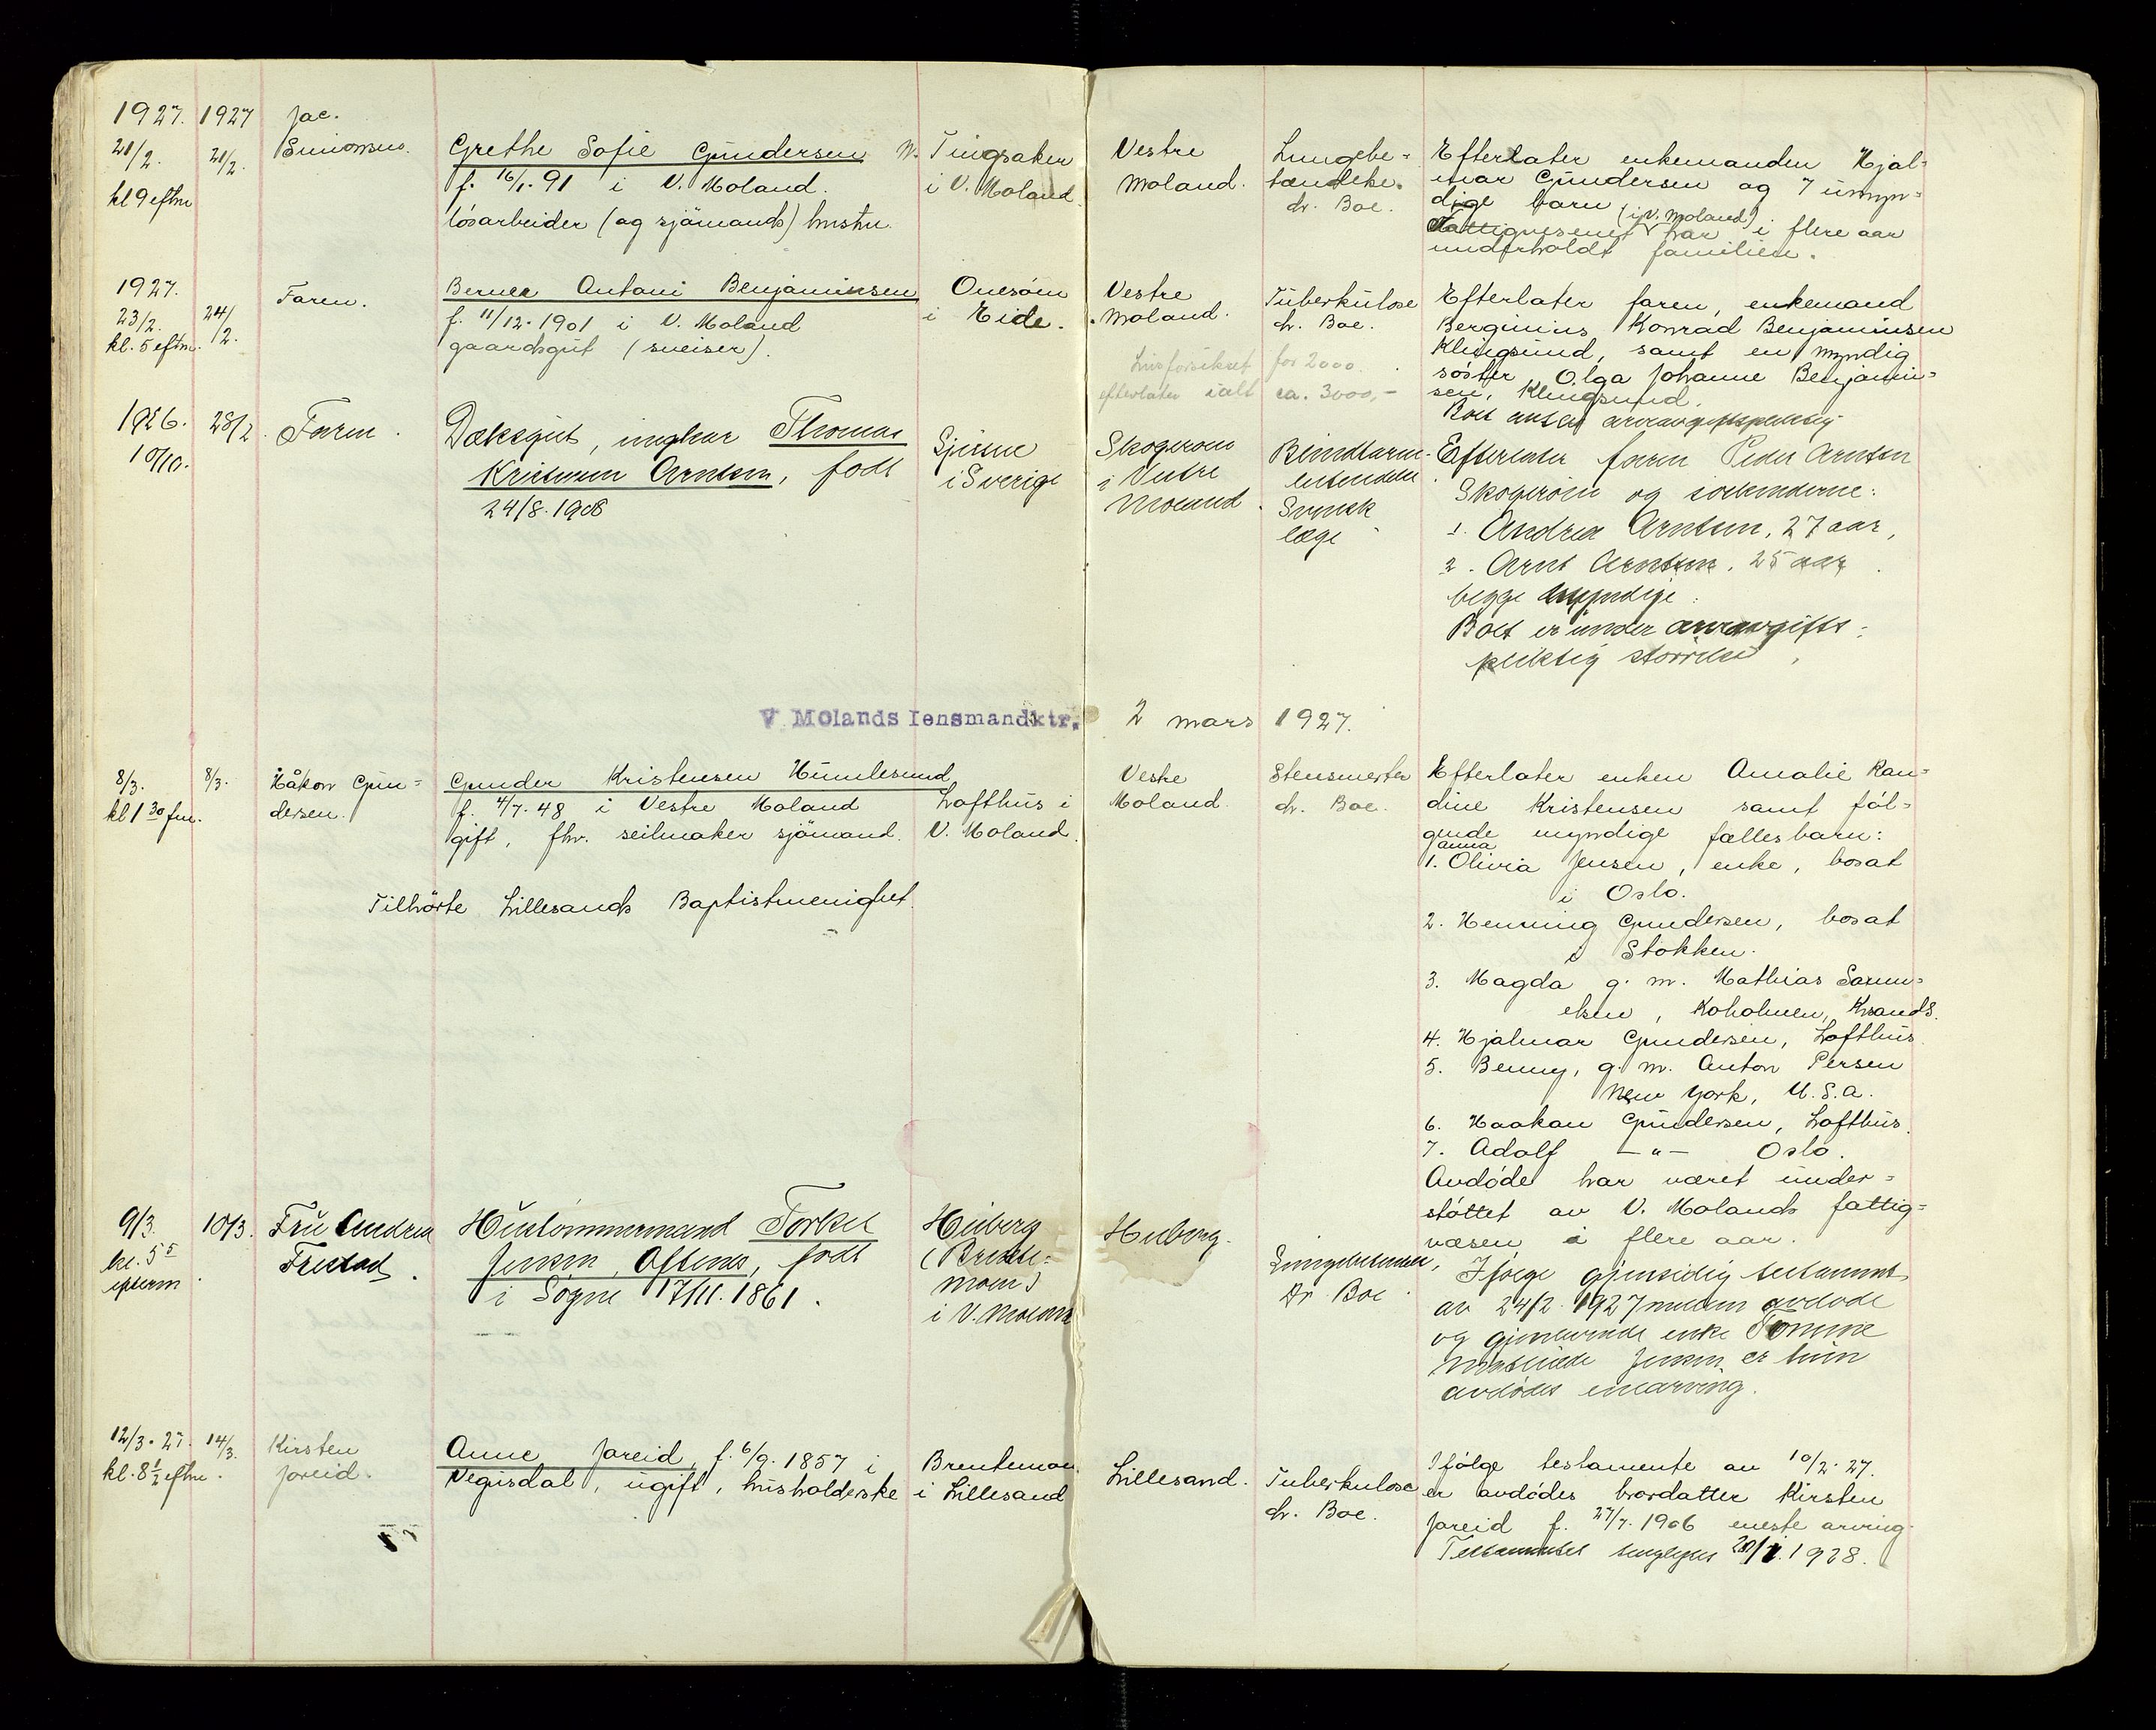 1927. 1927 Jac.
21/2. 21/2. Simonsen. Grethe Sofie Gundersen Tingsaker Vestre Lungebe=
kl 9 eftm f. 16/1. 91 i V. Moland. i V. Moland Moland. tændelse.
løsarbeider (og sjömands) hustru. dr. Boe.
Efterlater enkemanden Hjal=
mar Gundersen og 7 umyn=
dige barn (i V. Moland)
Fattigvesenet har i flere aar
underholdt familien.
1927.
23/2. 24/2. Faren. Berner Antoni Benjaminsen Onesöm Vestre Tuberkulose
kl. 5 eftm. f. 11/12. 1901 i V. Moland i Eide. Moland. dr. Boe.
gaardsgut (sveiser).
Livsforsikret for 2000.
efterlater ialt ca. 3000,-
Efterlater faren, enkemand
Berginius Konrad Benjaminsen
Klingsund, samt en myndig
søster Olga Johanne Benjamin=
sen, Klingsund.
Boet anses arveavgiftspliktig
1926. 28/2. Faren. Dæksgut, ungkar Thomas
10/10. Kristensen Arntsen, født i Sverige
24/8. 1908
Skogerøm
i Vestre
Moland.
Blindtarm-
betendelse
Svensk
læge
Efterlater faren Peder Arntsen
Skogerøm og søskenderne:
1. Andrea Arntsen, 27 aar,
2. Arnt Arntsen, 25 aar.
begge myndige.
Boet er under arveavgifts-
pliktig størrelse.
V. Molands lensmandktr. 2 mars 1927.
8/3. 8/3. Håkon Gun= Gunder Kristensen Humlesund
kl 1 30 fm. dersen. f. 4/7. 48 i Vestre Moland Lofthus i
gift, fhv. seilmaker sjömand. V. Moland.
Tilhörte Lillesands Baptistmenighet.
Vestre Stensmerter
Moland. dr. Boe.
Efterlater enken Amalie Ran=
dine Kristensen samt føl=
gende myndige fællesbarn:
Janna
1. Olivia Jensen, enke, bosat
i Oslo.
2. Henning Gundersen, bosat
i Stokken.
3. Magda g. m. Mathias Samu=
elsen, Koholmen, Krands.
4. Hjalmar Gundersen, Lofthus
5. Benny, g. m. Anton Persen
New York, U.S.A.
6. Haakon Gundersen, Lofthus.
7. Adolf —"— Oslo.
Avdøde har været under=
støttet av V. Molands fattig=
væsen i flere aar.
9/3. 10/3. Fru Andrea Hustömmermand Torkel Heiberg Heiberg.
kl. 5 5 Frestad. Jensen Oftenes, født
efterm i Søgne 17/11. 1861. i V. Moland
Lungebetendelse,
Dr. Boe.
Ifølge gjensidig testamente
av 24/2. 1927 mellem avdøde
og gjenlevende enke Tomine
Mathilde Jensen er hun
avdødes enearving.
12/3. 27. 14/3. Kirsten Anne Jareid, f. 6/9. 1857 i Brentemoen
kl. 8 1/2 eftm. Jareid. Vegusdal, ugift, husholderske i Lillesand
Lillesand. Tuberkulose
dr. Boe.
Ifølge testamente av 10/2. 27.
er avdødes brordatter Kirsten
Jareid f. 27/7. 1906 eneste arving.
Testamentet tinglyst 1928.